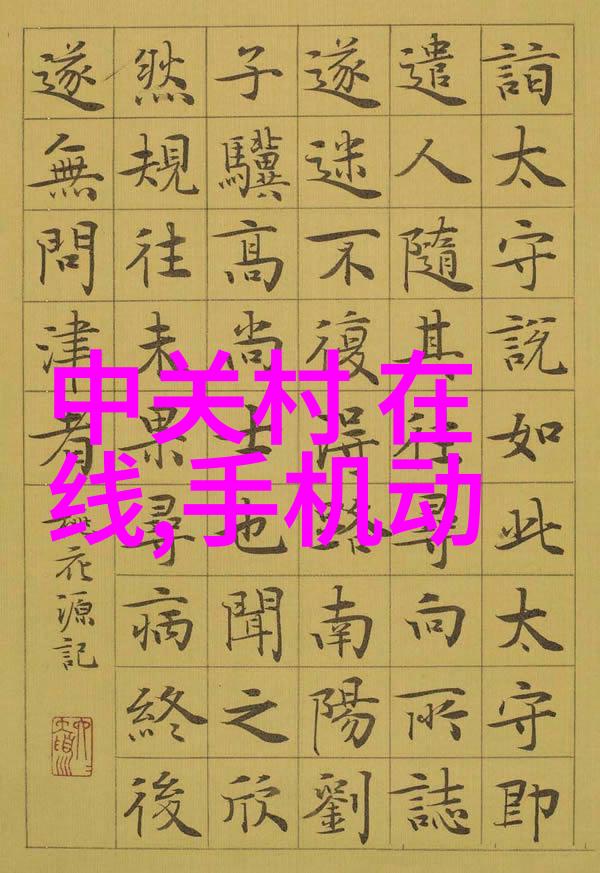 詣太守說如此太守即
遣人隨其尋向所誌
遂迷不復得路南陽劉
子驥高尚士也聞之欣
然規往未果尋病終後
遂無問津者
桃花源記
中关村 在
线,手机动